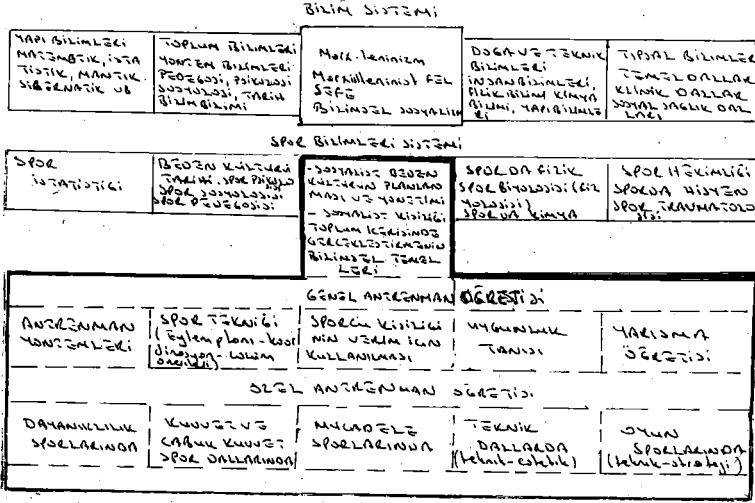 BİLİM SİSTEMİ
YAPI BİLİMLERİ
MATEMATİK, İSTA
TİSTİK, MANTIK
SİBERNATİK VB
TOPLUM BİLİMLERİ
YÖNTEM BİLİMLERİ
PEDEGOJİ, PSİKOLOJİ
SOSYOLOJİ, TARİH
BİLİM BİLİMİ
Mark. leninizm
Marksilleninist FEL
SEFE
BİLİMSEL SOSYALİZM
DOĞA VE TEKNİK
BİLİMLERİ
İNSAN BİLİMLERİ,
FİZİK BİLİMİ KİMYA
BİLİMİ, YAPI BİLİMLE
Rİ
TIPSAL BİLİMLER
TEMEL DALLAR
KLİNİK DALLAR
SOSYAL SAĞLIK DAL
LARI
SPOR BİLİMLERİ SİSTEMİ
SPOR
İSTATİSTİĞİ
BEDEN KÜLTÜRÜ
TARİHİ, SPOR PSİKOLO
SPOR SOSYOLOJİSİ
SPOR PEDEGOJİSİ
- SOSYALİST BEDEN
KÜLTÜRÜN PLANLAN
MASI VE YÖNETİMİ
- SOSYALİST KİŞİLİĞİ
TOPLUM İÇERİSİNDE
GERÇEKLEŞTİRMENİN
BİLİMSEL TEMEL
LERİ
SPORDA FİZİK
SPOR BİYOLOJİSİ (FİZ
YOLOJİSİ)
SPORDA KİMYA
SPOR HEKİMLİĞİ
SPORDA HİJYEN
SPOR TRAVMATOLO
JİSİ
GENEL ANTRENMAN ÖĞRETİSİ
ANTRENMAN
YÖNTEMLERİ
SPOR TEKNİĞİ
(Eylem planı - koor
dinasyon -
SPORCU KİŞİLİĞİ
NİN VERİM İÇİN
KULLANILMASI
UYGUNLUK
TANISI
YARIŞMA
ÖĞRETİSİ
ÖZEL ANTRENMAN ÖĞRETİSİ
DAYANIKLILIK
SPORLARINDA
KUVVET VE
ÇABUK KUVVET
SPOR DALLARINDA
MÜCADELE
SPORLARINDA
TEKNİK
DALLARDA
(teknik-estetik)
OYUN
SPORLARINDA
(teknik-strateji)